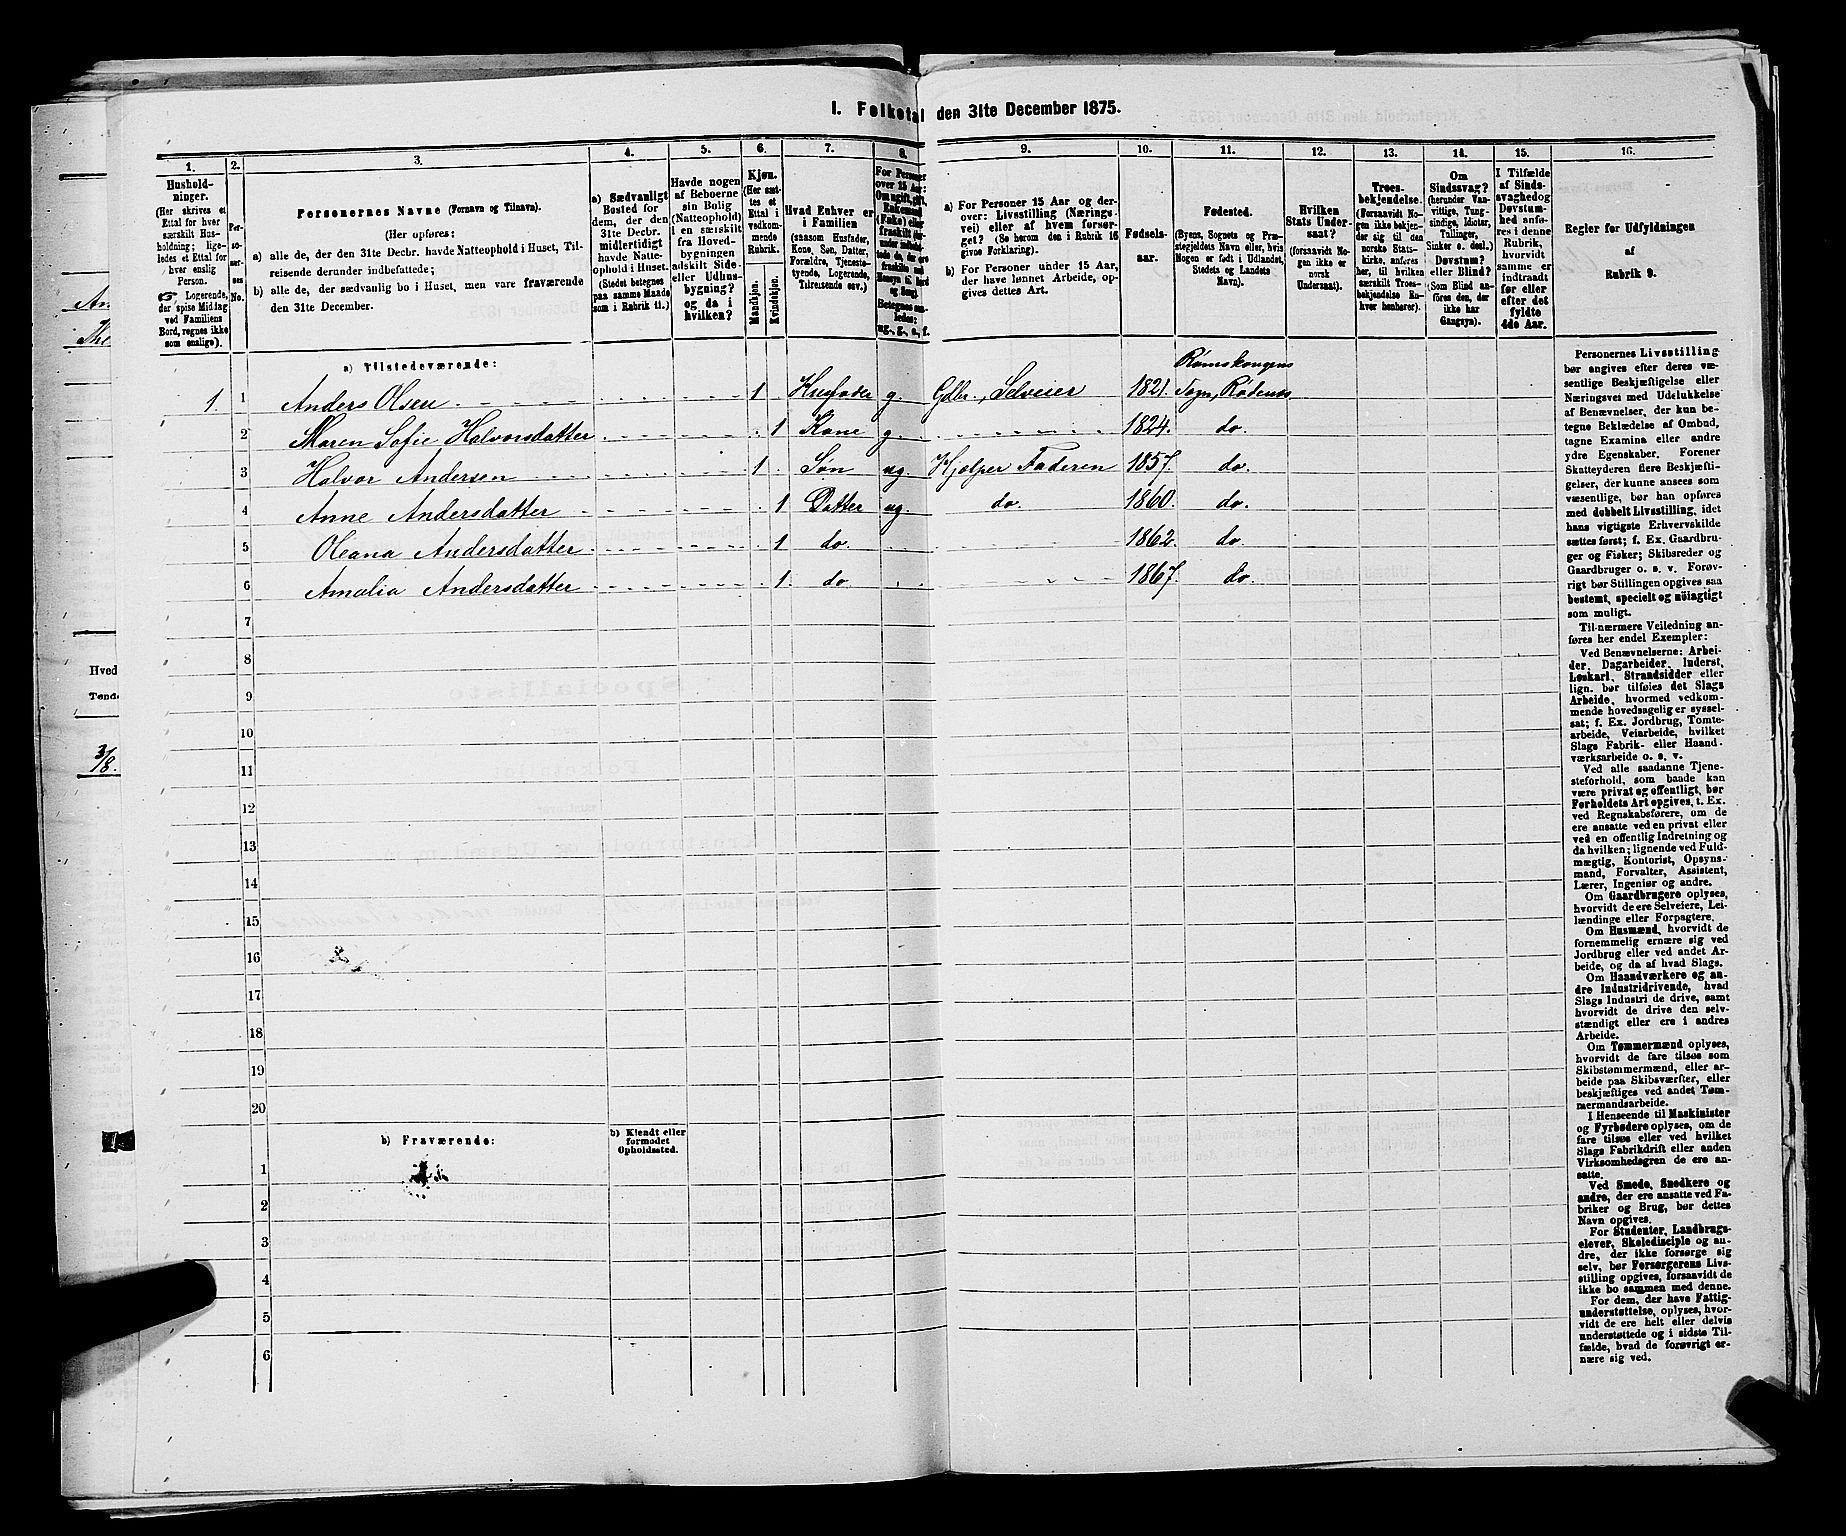 I. Folketal den 31te December 1875.
1. 2. 3. 4. 5. 6. 7. 8. 9. 10. 11. 12. 13. 14. 15. 16.
Hushold-
ninger.
(Her skrives et
Ettal for hver
særskilt Hus-
holdning; lige-
ledes et Ettal for
hver enslig
Person.
☞ Logerende,
der spise Middag
ved Familiens
Bord, regnes ikke
som enslige).
Per-
so-
ner-
nes
No.
Personernes Navne (Fornavn og Tilnavn).
(Her opføres:
a) alle de, der den 31te Decbr. havde Natteophold i Huset, Til-
reisende derunder indbefattede;
b) alle de, der sædvanlig bo i Huset, men vare fraværende
den 31te December.
a) Sædvanligt
Bosted for
dem, der den
31te Decbr.
midlertidigt
havde Natte-
ophold i Huset.
(Stedet betegnes
paa samme Maade
som i Rubrik 11.)
Havde nogen
af Beboerne
sin Bolig
(Natteophold)
i en særskilt
fra Hoved-
bygningen
adskilt Side-
eller Udhus-
bygning?
og da i
hvilken?
Kjøn.
(Her sæt-
tes et
Ettal i
vedkom-
mende
Rubrik.
Mandkjøn.
Kvindekjøn.
Hvad Enhver er
i Familien
(saasom Husfader,
Kone, Søn, Datter,
Forældre, Tjeneste-
tyende, Logerende,
Tilreisende osv.)
For Personer
over 15 Aar:
Om ugift, gift,
Enkemand
(Enke) eller
fraskilt
Betegnes saa-
ledes:
ug., g., e., f.
a) For Personer 15 Aar og der-
over: Livsstilling (Nærings-
vei) eller af hvem forsør-
get? (Se herom den i Rubrik 16
givne Forklaring).
b) For Personer under 15 Aar,
der have lønnet Arbeide, op-
gives dettes Art.
Fødsels-
aar.
Fødested.
(Byens, Sognets og Præ-
stegjeldets Navn eller, hvis
Nogen er født i Udlandet,
Stedets og Landets
Navn).
Hvilken
Stats Under-
saat?
(forsaavidt No-
gen ikke er
norsk
Undersaat).
Troes-
bekjendelse.
(Forsaavidt No-
gen ikke bekjen-
der sig til den
norske Stats-
kirke, anføres
her, til hvilken
særskilt Troes-
bekjendelse En-
hver henhører).
Om
Sindssvag?
(herunder Van-
vittige, Tung-
sindige, Idioter,
Tullinger,
Sinker o. desl.)
Døvstum?
eller Blind?
(Som Blind an-
føres den, der
ikke har
Gangsyn).
I Tilfælde
af Sinds-
svaghed og
Døvstum-
hed anfø-
res i denne
Rubrik,
hvorvidt
samme er
indtraadt
før eller
efter det
fyldte
4de Aar.
Regler for Udfyldningen
af
Rubrik 9.
a) Tilstedeværende:
Rømskougens
1. 1 Anders Olsen 1 Husfader g. Gdbr., Selveier 1821. Sogn, Rødenæs
2 Maren Sofie Halvorsdatter 1 Kone g. 1824. do.
3 Halvor Andersen 1 Søn ug. Hjælper Faderen 1857. do.
4 Anne Andersdatter 1 Datter ug. do. 1860. do.
5 Oleana Andersdatter 1 do. 1862. do.
6 Amalia Andersdatter 1 do 1867. do.
7
8
9
10
11
12
13
14
15
16
17
18
19
20
b) Fraværende:
b) Kjendt eller
formodet
Opholdssted.
1
2
3
4
5
6
Personernes Livsstilling
bør angives efter deres væ-
sentlige Beskjæftigelse eller
Næringsvei med Udelukkelse
af Benævnelser, der kun be-
tegne Beklædelse af Ombud,
tagne Examina eller andre
ydre Egenskaber. Forener
Skatteyderen flere Beskjæfti-
gelser, der kunne ansees som
væsentlige, bør han opføres
med dobbelt Livsstilling, idet
hans vigtigste Erhvervskilde
sættes først; f. Ex. Gaardbru-
ger og Fisker; Skibsreder og
Gaardbruger o. s. v. Forøv-
rigt bør Stillingen opgives saa
bestemt, specielt og nøiagtigt
som muligt.
Til nærmere Veiledning an-
føres her endel Exempler:
Ved Benævnelserne: Arbei-
der, Dagarbeider, Inderst,
Løskarl, Strandsidder eller
lign. bør tilføies det Slags
Arbeide, hvormed vedkom-
mende hovedsagelig er syssel-
sat; f. Ex. Jordbrug, Tomte-
arbeide, Veiarbeide, hvilket
Slags Fabrik- eller Haand-
værksarbeide o. s. v.
Ved alle saadanne Tjene-
steforhold, som baade kan
være privat og offentligt, bør
Forholdets Art opgives, t. Ex.
ved Regnskabsførere, om de
ere ansatte ved en privat eller
ved en offentlig Indretning og
da hvilken; lignende ved Fuld-
mægtig, Kontorist, Opsyns-
mand, Forvalter, Assistent,
Lærer, Ingeniør og andre.
Om Gaardbrugere oplyses,
hvorvidt de ere Selveiere, Lei-
lændinge eller Forpagtere.
Om Husmænd, hvorvidt de
fornemmelig ernære sig ved
Jordbrug eller ved andet Ar-
beide, og da af hvad Slags.
Om Haandværkere og an-
dre Industridrivende, hvad
Slags Industri de drive, samt
hvorvidt de drive den selv-
stændigt eller ere i andres
Arbeide.
Om Tømmermænd oplyses,
hvorvidt de fare tilsøs som
Skibstømmermænd, eller ar-
beide paa Skibsværfter, eller
beskjæftiges ved andet Tøm-
mermandsarbeide.
I Henseende til Maskinister
og Fyrbødere oplyses, om de
fare tilsøs eller ved hvilket
Slags Fabrikdrift eller anden
Virksomhedsgren de ere an-
satte.
Ved Smede, Snedkere og
andre, der ere ansatte ved Fa-
briker og Brug, bør dettes
Navn opgives.
For Studenter, Landbrugs-
elever, Skoledisciple og an-
dre, der ikke forsørge sig
selv, bør Forsørgerens Livs-
stilling opgives, forsaavidt de
ikke bo sammen med denne.
For dem, der have Fattig-
understøttelse, oplyses, hvor-
vidt de ere helt eller delvis
understøttede og i sidste Til-
fælde, hvad de forøvrigt er-
nære sig ved.
Hved
Tønde
3/8.